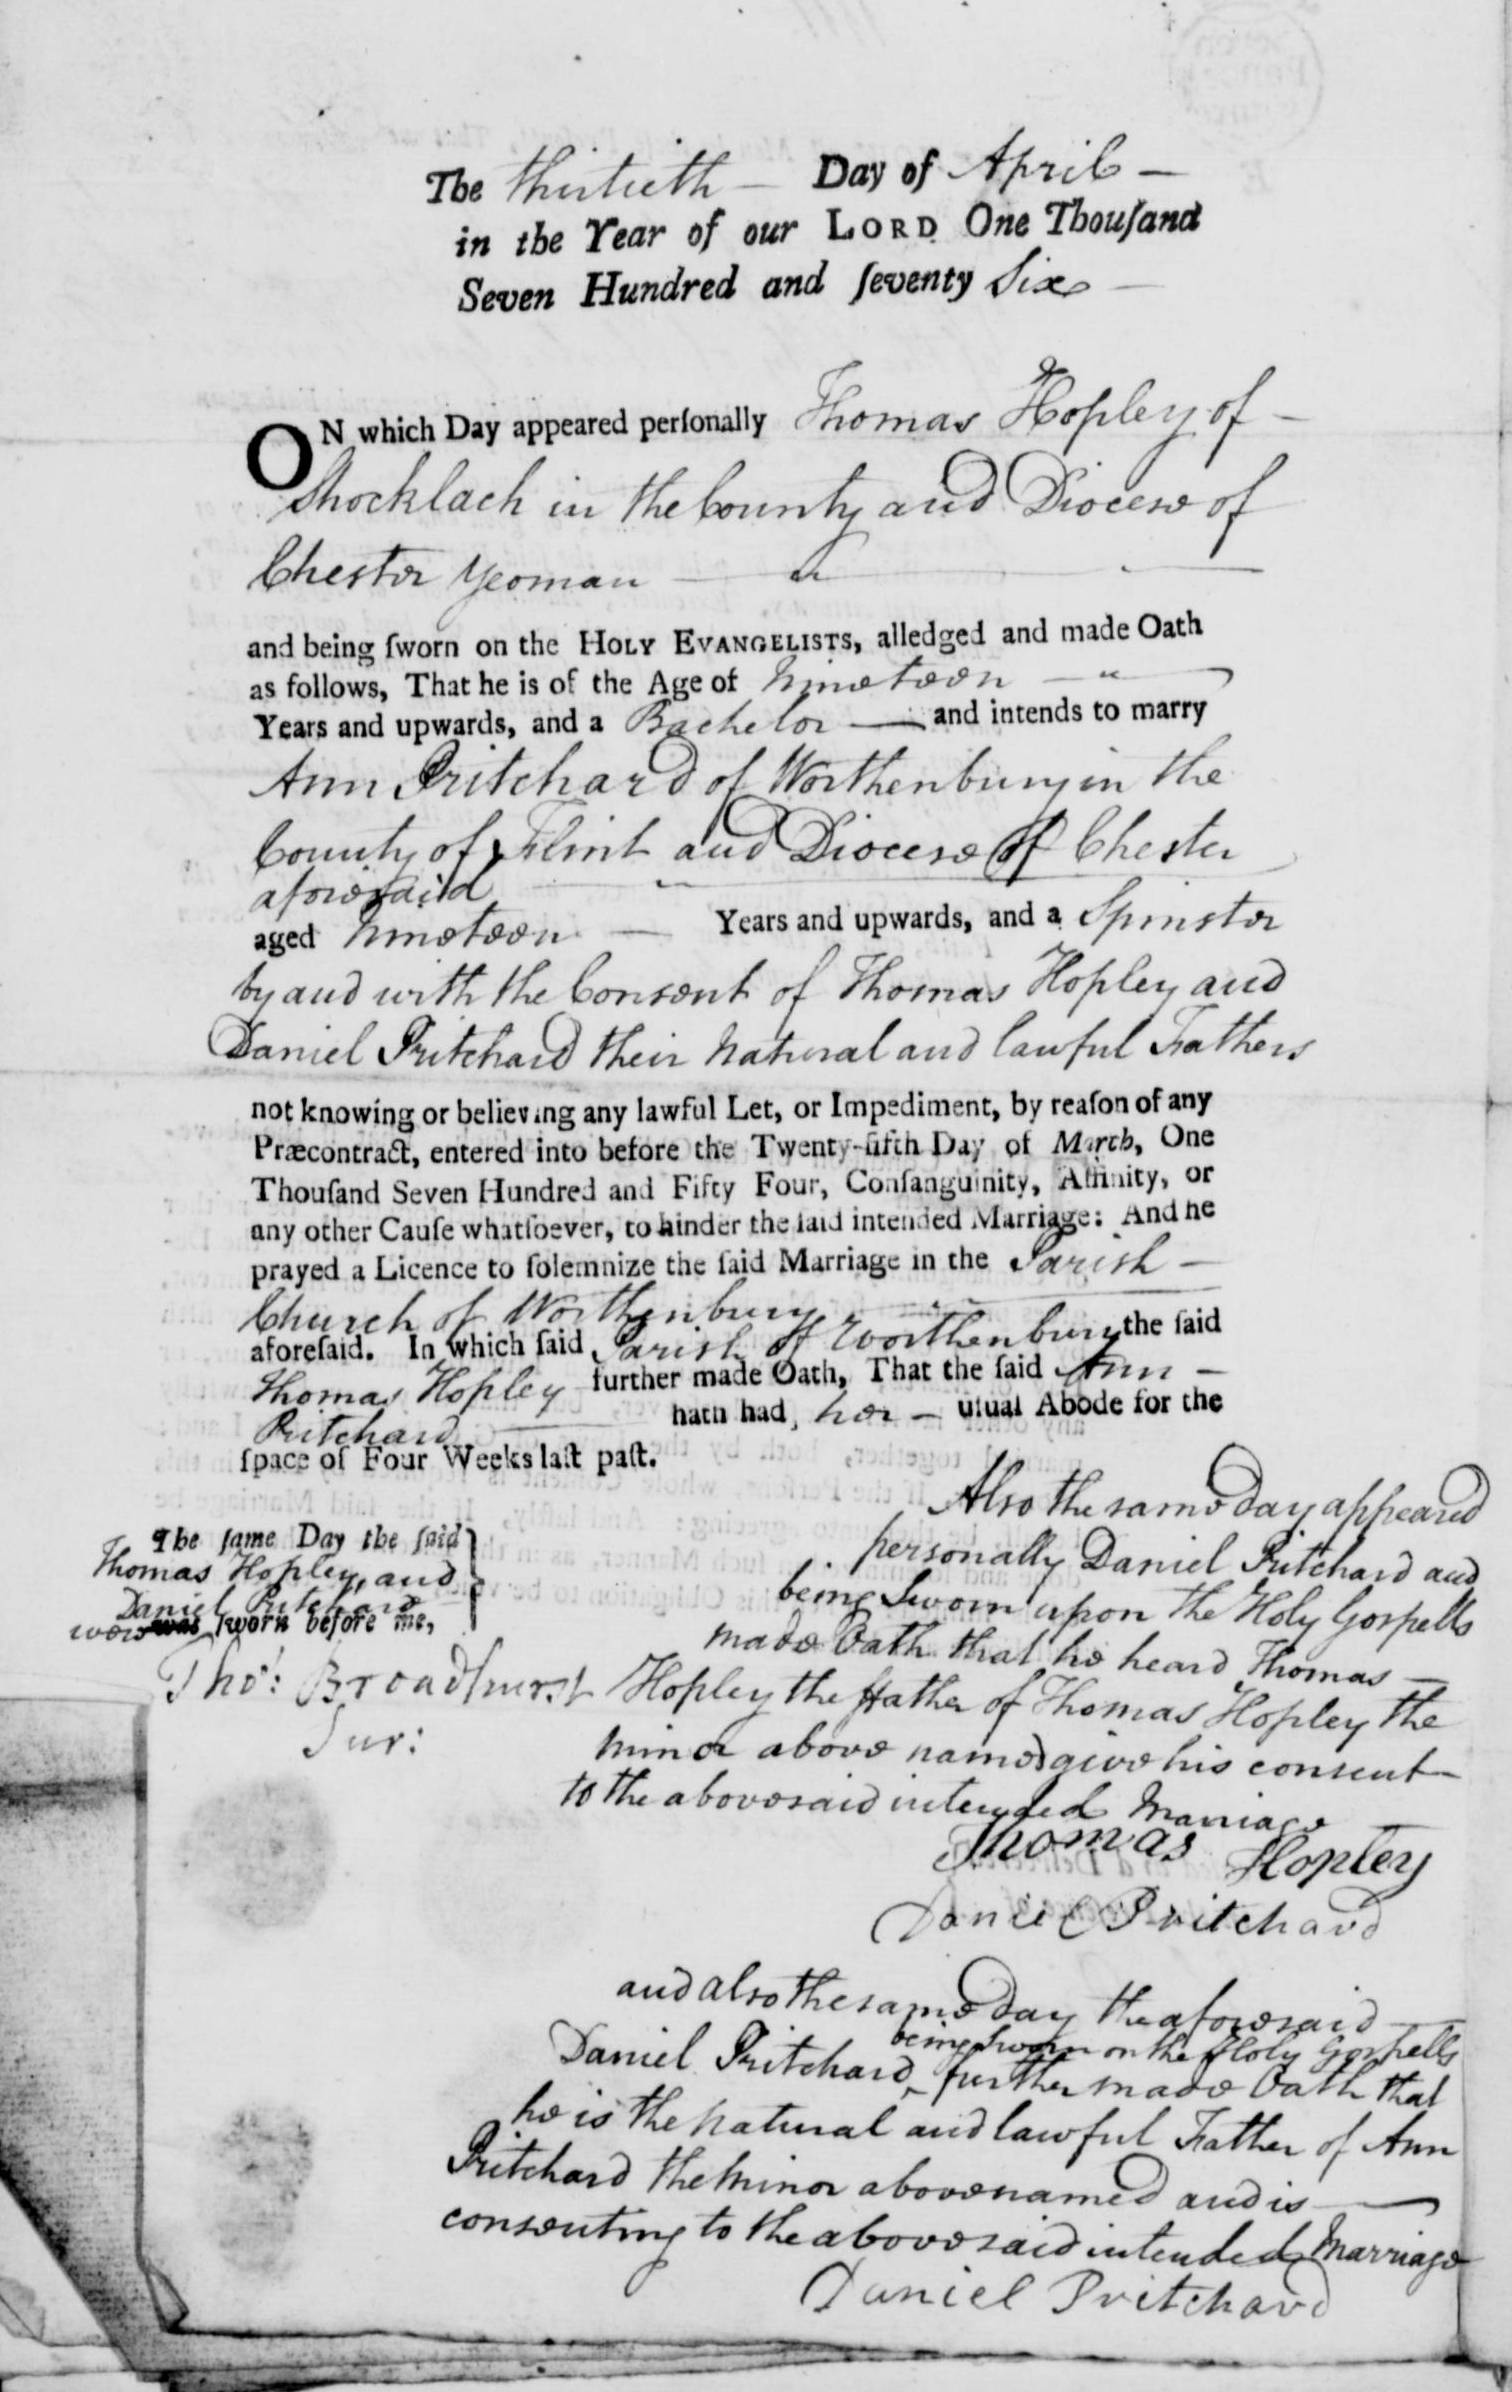 The thirtieth — Day of April —
in the Year of our LORD One Thouſand
Seven Hundred and ſeventy Six —
ON which Day appeared perſonally Thomas Hopley of —
Shocklach in the County and Diocese of
Chester Yeoman —
and being ſworn on the HOLY EVANGELISTS, alledged and made Oath
as follows, That he is of the Age of Nineteen —
Years and upwards, and a Bachelor — and intends to marry
Ann Pritchard of Worthenbury in the
County of Flint and Diocese of Chester
aforesaid
aged Nineteen — Years and upwards, and a Spinster
by and with the Consent of Thomas Hopley and
Daniel Pritchard their Natural and lawful Fathers
not knowing or believing any lawful Let, or Impediment, by reaſon of any
Præcontract, entered into before the Twenty-fifth Day of March, One
Thouſand Seven Hundred and Fifty Four, Conſanguinity, Affinity, or
any other Cauſe whatſoever, to hinder the ſaid intended Marriage: And he
prayed a Licence to ſolemnize the ſaid Marriage in the Parish —
Church of Worthenbury
aforeſaid. In which ſaid Parish of Worthenbury the ſaid
Thomas Hopley further made Oath, That the ſaid Ann —
Pritchard hath had her — uſual Abode for the
ſpace of Four Weeks laſt paſt.
The ſame Day the ſaid
Thomas Hopley, and
Daniel Pritchard
were was ſworn before me,
Thos: Broadhurst
Sur:
Also the same day appeared
personally Daniel Pritchard and
being Sworn upon the Holy Gospells
made Oath that he heard Thomas —
Hopley the ffather of Thomas Hopley the
Minor above named give his consent
to the abovesaid intended Marriage —
Thomas Hopley
Daniel Pritchard
and also the same day the aforesaid —
being Sworn on the Holy Gospells
Daniel Pritchard ‸ further made Oath that
he is the Natural and lawful Father of Ann
Pritchard the Minor abovenamed and is —
consenting to the abovesaid intended Marriage
Daniel Pritchard